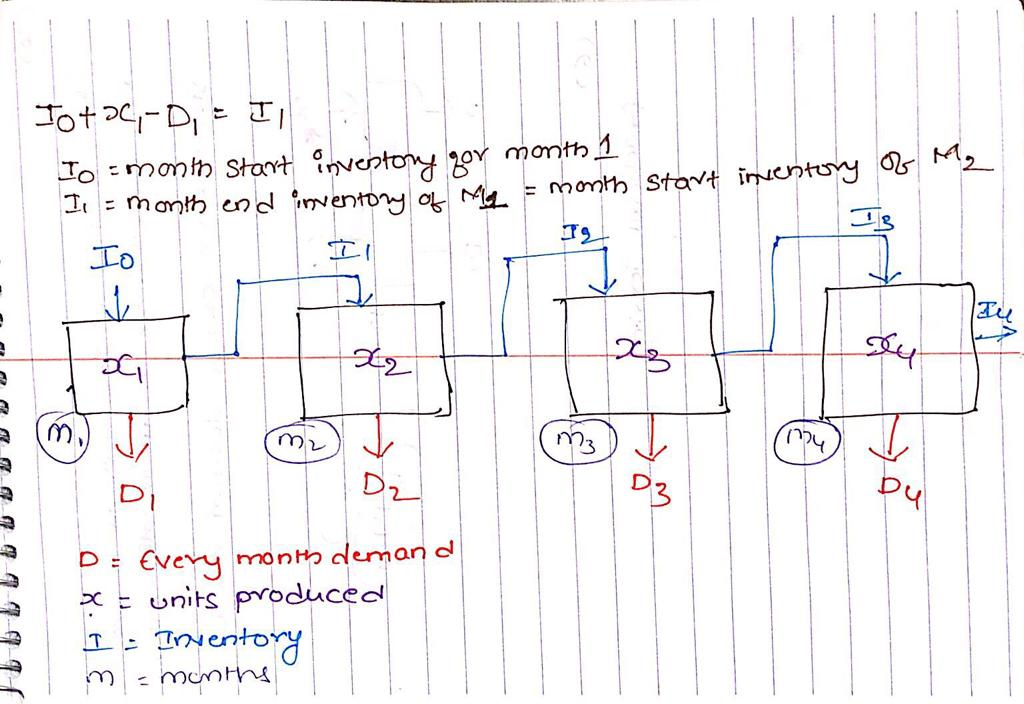 I0 + x1 - D1 = I1
I0 = month start inventory for month 1
I1 = month end inventory of M1 = month start inventory of M2
I0 I1 I2 I3
x1 x2 x3 x4 I4
m1 m2 m3 m4
D1 D2 D3 D4
D = Every month demand
x = units produced
I = Inventory
m = months